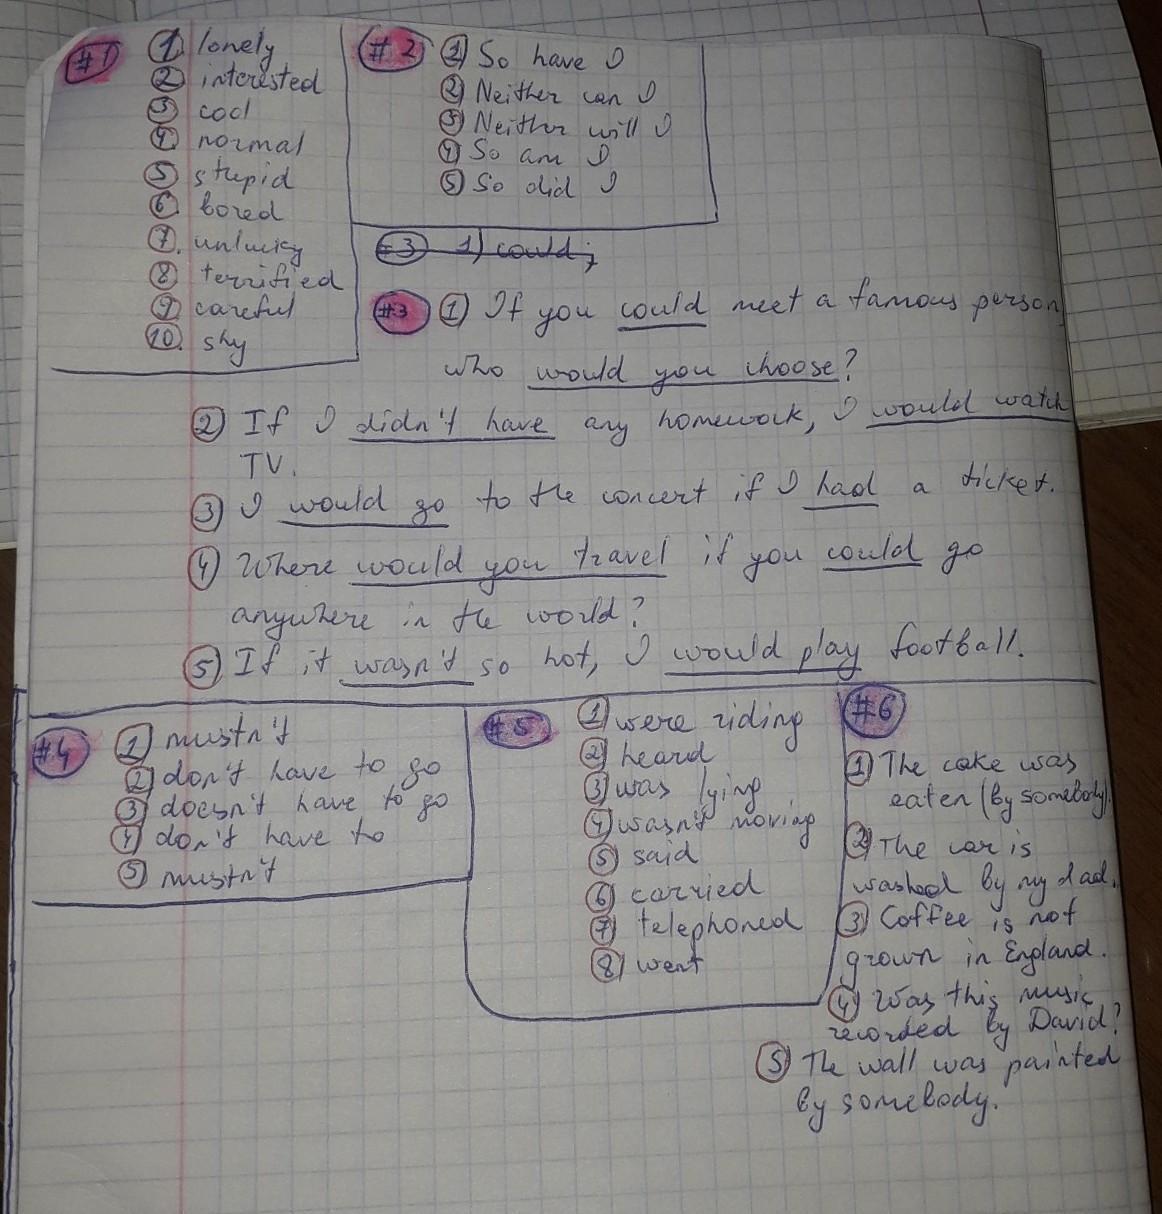 #1
1 lonely
2 interested
3 cool
4 normal
5 stupid
6 bored
7. unlucky
8 terrified
9 careful
10. shy
#2
1) So have I
2) Neither can I
3) Neither will I
4) So am I
5) So did I
#3 1) could;
#3 1) If you could meet a famous person,
who would you choose?
2) If I didn't have any homework, I would watch
TV.
3) I would go to the concert if I had a ticket.
4) Where would you travel if you could go
anywhere in the world?
5) If it wasn't so hot, I would play football.
#4
1) mustn't
2) don't have to go
3) doesn't have to go
4) don't have to
5) mustn't
#5
1) were riding
2) heard
3) was lying
4) wasn't moving
5) said
6) carried
7) telephoned
8) went
#6
1) The cake was
eaten (by somebody).
2) The car is
washed by my dad.
3) Coffee is not
grown in England.
4) Was this music
recorded by David?
5) The wall was painted
by somebody.